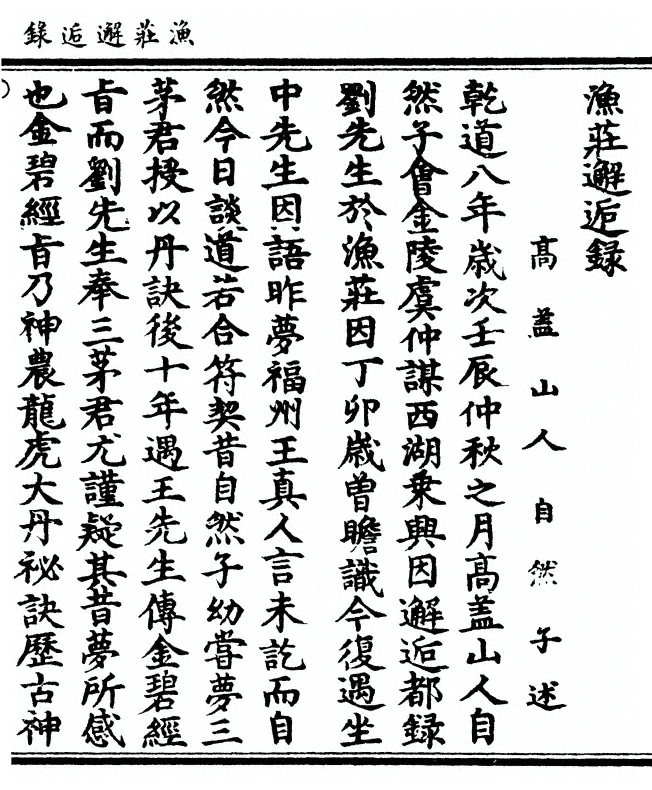 漁莊邂逅錄
漁莊邂逅録
髙蓋山人自然子述
乾道八年歳次壬辰仲秋之月髙蓋山人自
然子會金陵虞仲謀西湖乗興因邂逅都録
劉先生於漁莊因丁卯歳曽瞻識今復遇坐
中先生因語昨夢福州王真人言未訖而自
然今日談道若合符契昔自然子幼甞夢三
茅君授以丹訣後十年遇王先生傳金碧經
㫖而劉先生奉三茅君尤謹疑其昔夢所感
也金碧經㫖乃神農龍虎大丹祕訣歷古神